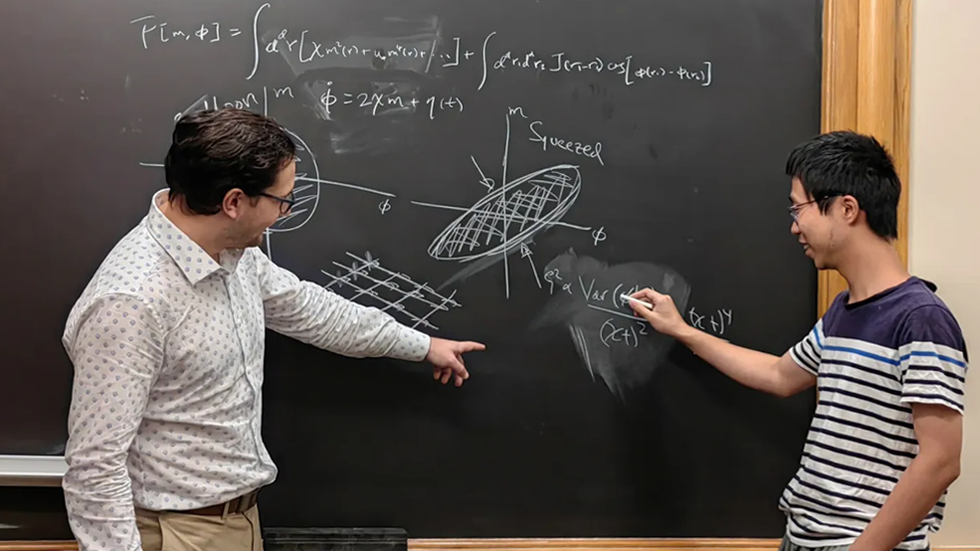 F[m, ϕ] = ∫d^d r [χ m²(r) + u₀ m⁴(r) + ...] + ∫d^d r₁ d^d r₂ J(r₁-r₂) cos[ϕ(r₁) - ϕ(r₂)]
m
ϕ̇ = 2χm + η(t)
m
Squeezed
ϕ
ϕ
ξ² ∝ Var(
(χt)²
(χt)⁴